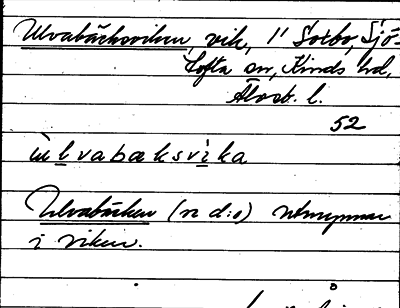 Ulvabäcksviken, vik, 1' Solbo, Sjö-
tofta sn, Kinds hd,
Älvsb. l.
52
ùlvabæksvìka
Ulvabäcken (nr d:o) utmynnar
i viken.